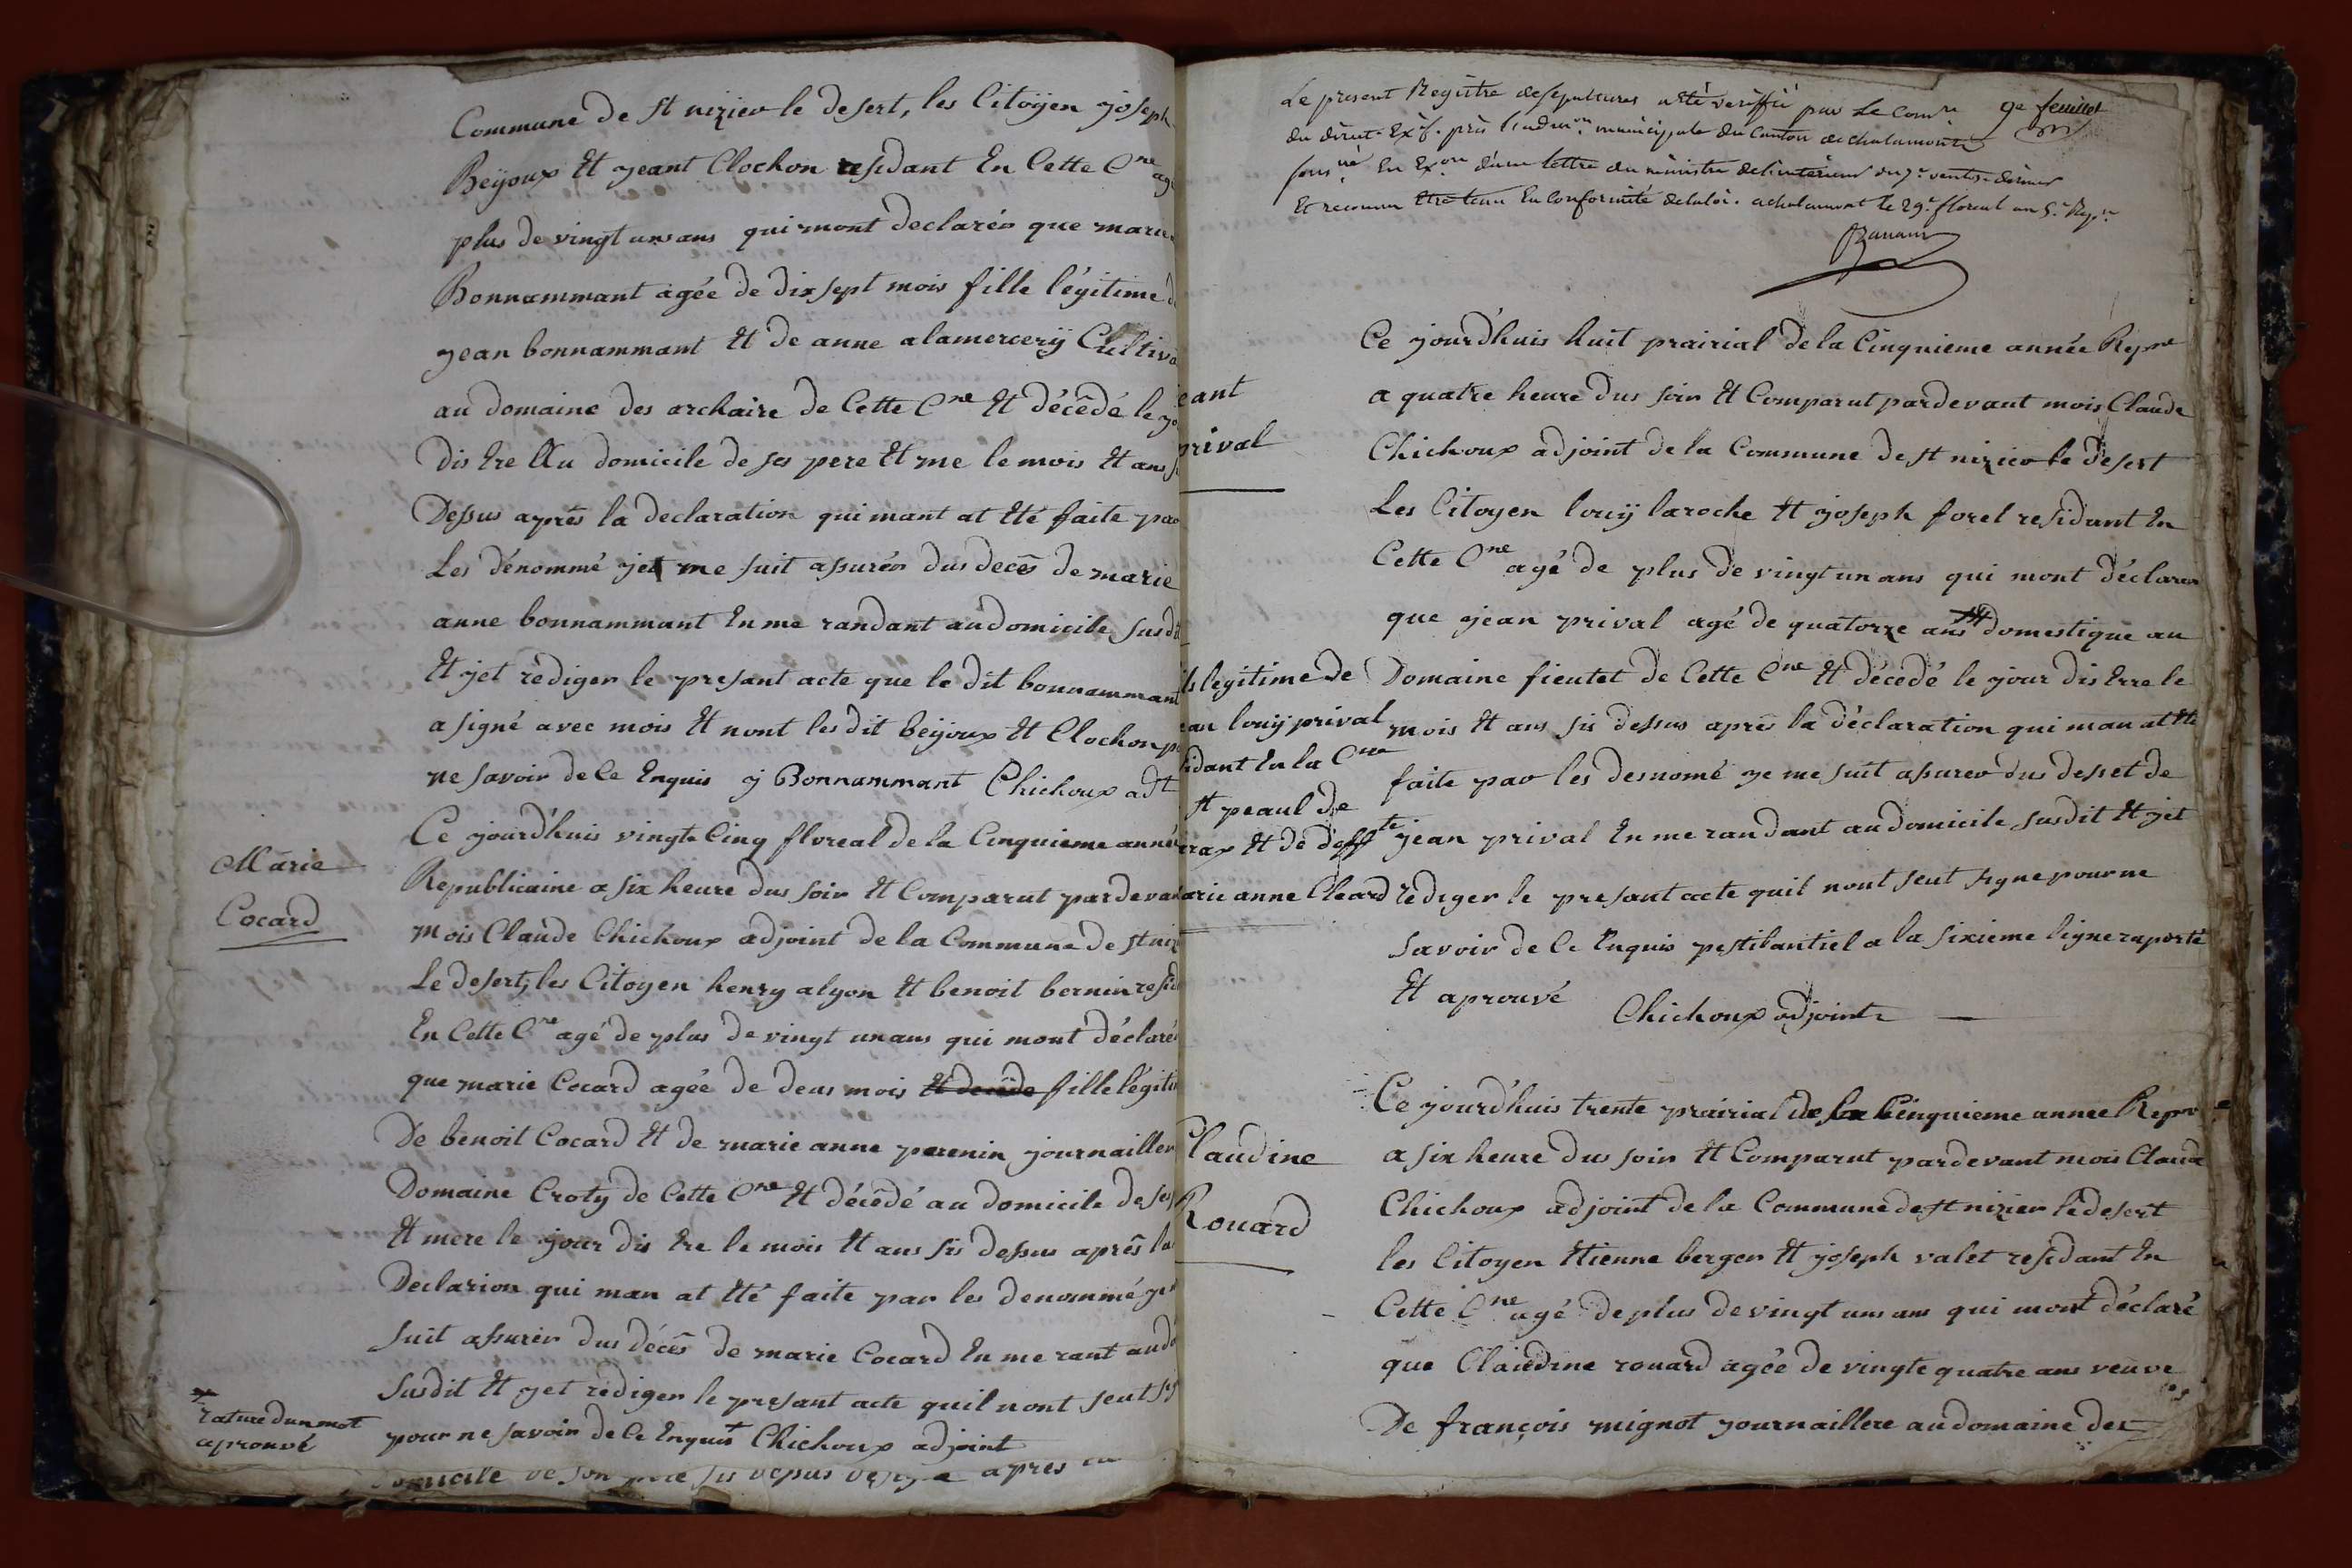 Commune de St nizier le desert, les Citoÿen joseph
Beÿoux Et jeant Clochon resident En Cette Cne agé
plus de vingt uns ans qui mont declarés que marie
Bonnammant agée de dix sept mois fille légitime de
jean bonnammant Et de anne alamercerÿ Cultiva
au domaine des archaire de Cette Cne Et décêdé le jo
dis Ere Au domicile de ses pere Et me le mois Et ans s
Dessus après la declaration qui mant at Eté faite par
Les dénommé jet me suit assurés dus decês de marie
anne bonnammant En me randant au domicile susdi
Et jet rédiger le presant acte que le dit bonnammant
a signé avec mois Et nont les dit beÿoux Et Clochon p
ne savoir de Ce Enquis j Bonnammant Chichoux adt
Marie
Cocard
Ce jourd'huis vingte Cinq floreal de la Cinquieme anné
Republicaine a six heure dus soir Et Comparut pardevan
mois Claude Chichoux adjoint de la Commune de st niz
Le desert, les Citoyen henry alyon Et benoit bernin resid
En Cette Cne agé de plus de vingt unans qui mont déclaré
que marie Cocard agée de deus mois Et decêde fille légiti
De benoit Cocard Et de marie anne perenin journailler
Domaine Croty de Cette Cne Et décêdé au domicile de ses
Et mere le jour dis Ere le mois Et ans sis dessus aprês la
Declarion qui man at Eté faite par les denommé je
suit assurér dus décês de marie Cocard En me rant audo
Susdit Et jet rédiger le presant acte quil nont seut si
pour ne savoir de Ce Enquis + Chichoux adjoint
+
rature dun mot
aprouvé
domicile de son pere sis depus apres
Le present Registre desepultures a été veriffié par Le Comre 9e feuillet
du direct. Exif. près l'admon municipale du Canton de chalamont
sousné En Exon d'une lettre du ministre de l'intérieur du 7e ventse dernier
Et reconnu Etre tenu En Conformité de la loi. a chalamont le 29e floreal an 5e Repn
eant
prival
Ce jourd'huis huit prairial de la Cinquieme année Repne
a quatre heure dus soir Et Comparut pardevant mois Claude
Chichoux adjoint de la Commune de st nizier le desert
Les Citoyen louÿ laroche Et joseph forel residant En
Cette Cne agé de plus de vingt un ans qui mont déclarer
que jean prival agé de quatorze ans domestique au
ls legitime de
ean louÿ prival
idant En la Cne
st peaul de
rax Et de deffte
arie anne Cleard
Domaine fientet de Cette Cne Et décedé le jour dis Erre le
mois Et ans sis dessus aprês la déclaration qui man at Eté
faite par les desnomé je me suit assurer dus desset de
jean prival En me randant au domicile susdit Et jet
rédiger le presant acte quil nont seut signe pour ne
savoir de Ce Enquis pestilantiel a la sixieme ligne raporté
Et aprouvé
Chichoux adjoint
Claudine
Rouard
Ce jourd'huis trente prairial de la Cinquieme annee Repne
a six heure dus soir Et Comparut pardevant mois Claude
Chichoux adjoint de la Commune de st nizier le desert
les Citoyen Etienne berger Et joseph valet residant En
Cette Cne agé de plus de vingt uns ans qui mont déclaré
que Claudine rouard agée de vingte quatre ans veuve
De françois mignot journaillere au domaine des